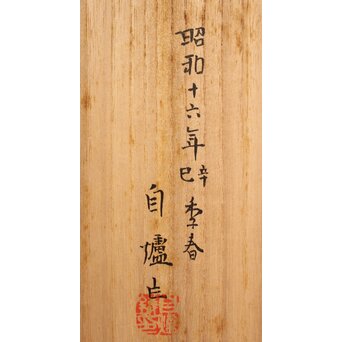 昭和十六年辛巳季春
自爐